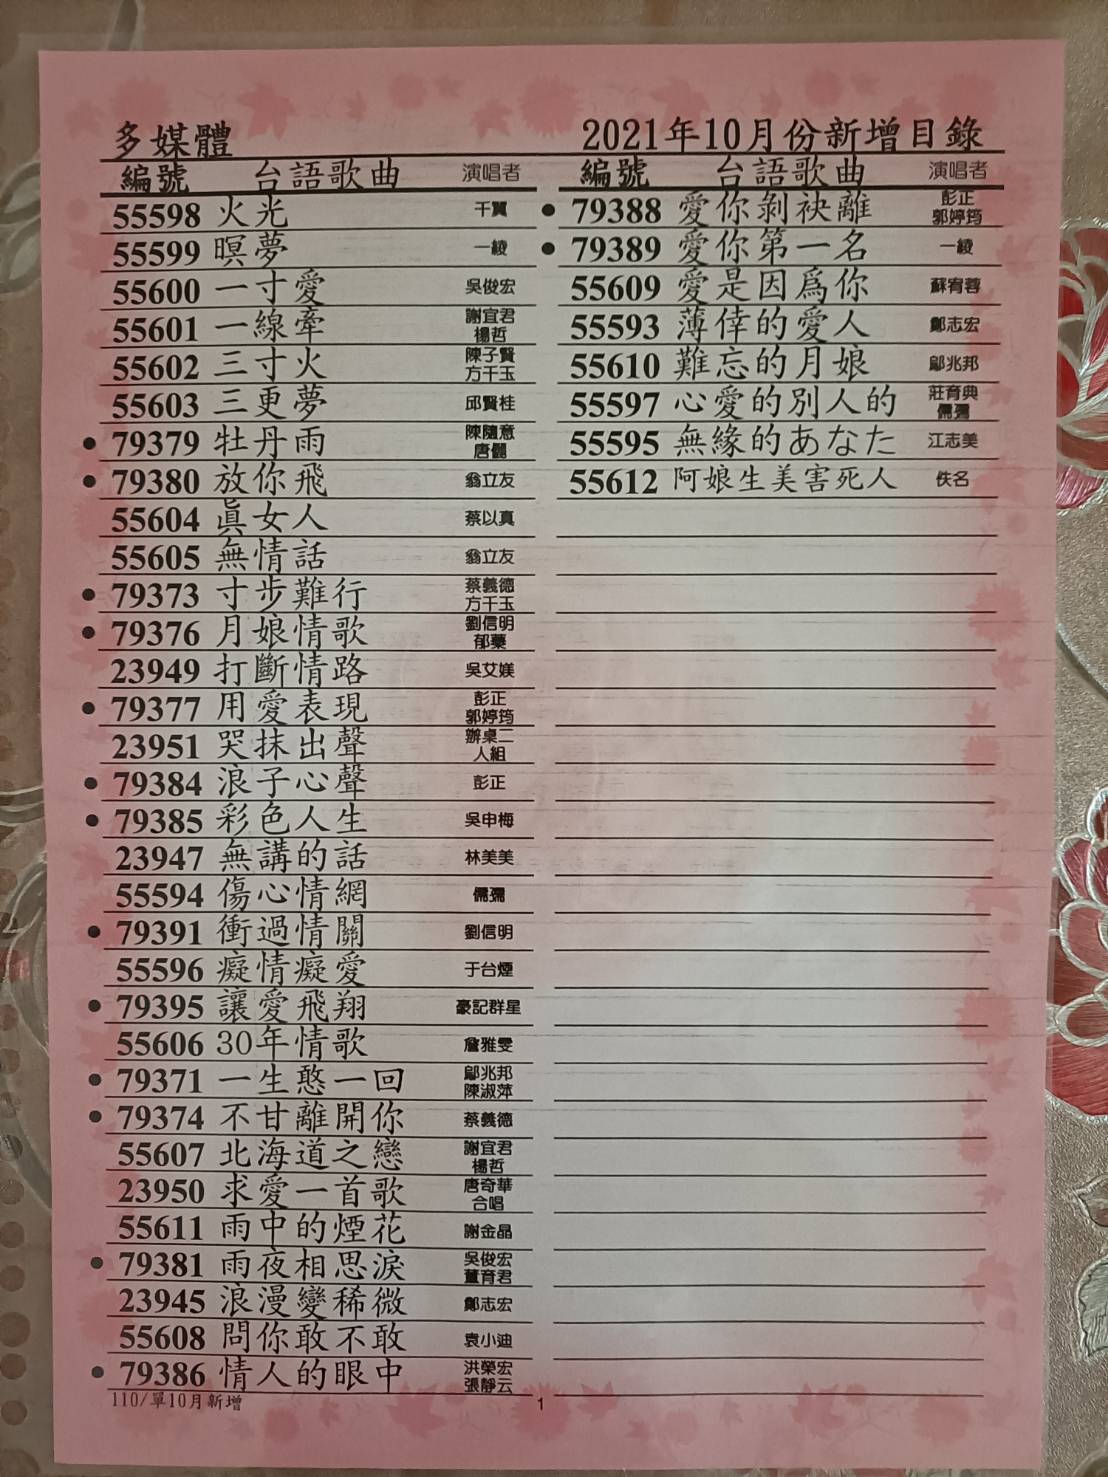 多媒體
2021年10月份新增目錄
編號 台語歌曲 演唱者
55598 火光 千翼
55599 暝夢 一綾
55600 一寸愛 吳俊宏
55601 一線牽 謝宜君 楊哲
55602 三寸火 陳子賢 方千玉
55603 三更夢 邱賢桂
● 79379 牡丹雨 陳隨意 唐儷
● 79380 放你飛 翁立友
55604 眞女人 蔡以真
55605 無情話 翁立友
● 79373 寸步難行 蔡義德 方千玉
● 79376 月娘情歌 劉信明 郁蘂
23949 打斷情路 吳艾媄
● 79377 用愛表現 彭正 郭婷筠
23951 哭抹出聲 辦桌二人組
● 79384 浪子心聲 彭正
● 79385 彩色人生 吳申梅
23947 無講的話 林美美
55594 傷心情網 儒彌
● 79391 衝過情關 劉信明
55596 癡情癡愛 于台煙
● 79395 讓愛飛翔 豪記群星
55606 30年情歌 詹雅雯
● 79371 一生憨一回 鄔兆邦 陳淑萍
● 79374 不甘離開你 蔡義德
55607 北海道之戀 謝宜君 楊哲
23950 求愛一首歌 唐奇華 合唱
55611 雨中的煙花 謝金晶
● 79381 雨夜相思淚 吳俊宏 董育君
23945 浪漫變稀微 鄭志宏
55608 問你敢不敢 袁小迪
● 79386 情人的眼中 洪榮宏 張靜云
編號 台語歌曲 演唱者
● 79388 愛你剝袂離 彭正 郭婷筠
● 79389 愛你第一名 一綾
55609 愛是因爲你 蘇宥蓉
55593 薄倖的愛人 鄭志宏
55610 難忘的月娘 鄔兆邦
55597 心愛的別人的 莊育典 儒彌
55595 無緣的あなた 江志美
55612 阿娘生美害死人 佚名
110/單10月新增
1